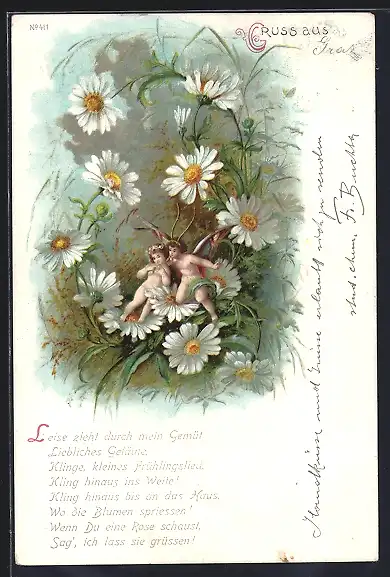 No 411
GRUSS AUS
Graz
Leise zieht durch mein Gemüt
Liebliches Geläute,
Klinge, kleines Frühlingslied,
Kling hinaus ins Weite!
Kling hinaus bis an das Haus,
Wo die Blumen spriessen!
Wenn Du eine Rose schaust,
Sag', ich lass sie grüssen!
und Grüsse erlaubt sich zu senden
F. Buchta
stud. chem.